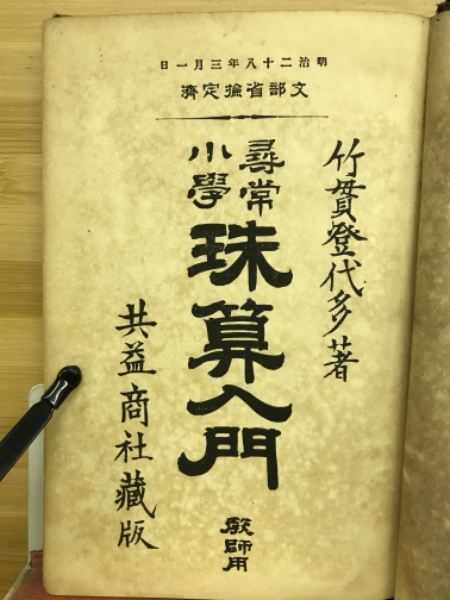 明治二十八年三月一日
文部省撿定濟
竹貫登代多著
尋常
小學
珠算入門
教師用
共益商社藏版